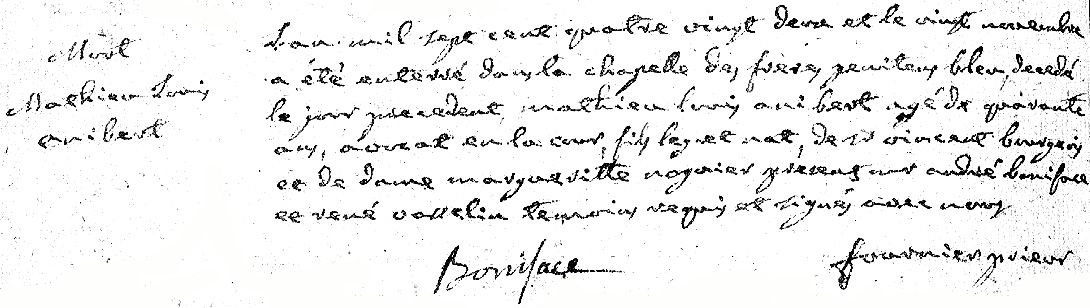 Mort
Mathieu Louis
anibert
L'an mil sept cent quatre vingt deux et le vingt novembre
a été enterré dans la chapelle des freres penitens bleu, decedé
le jour precedent, mathieu louis anibert agé de quarante
ans, avocat en la cour, fils leg et nat, de sr vincent bourgeois
et de dame margueritte noguier présens mr andré boniface
et rené vasselin temoins requis et signés avec nous
Boniface fournier prieur